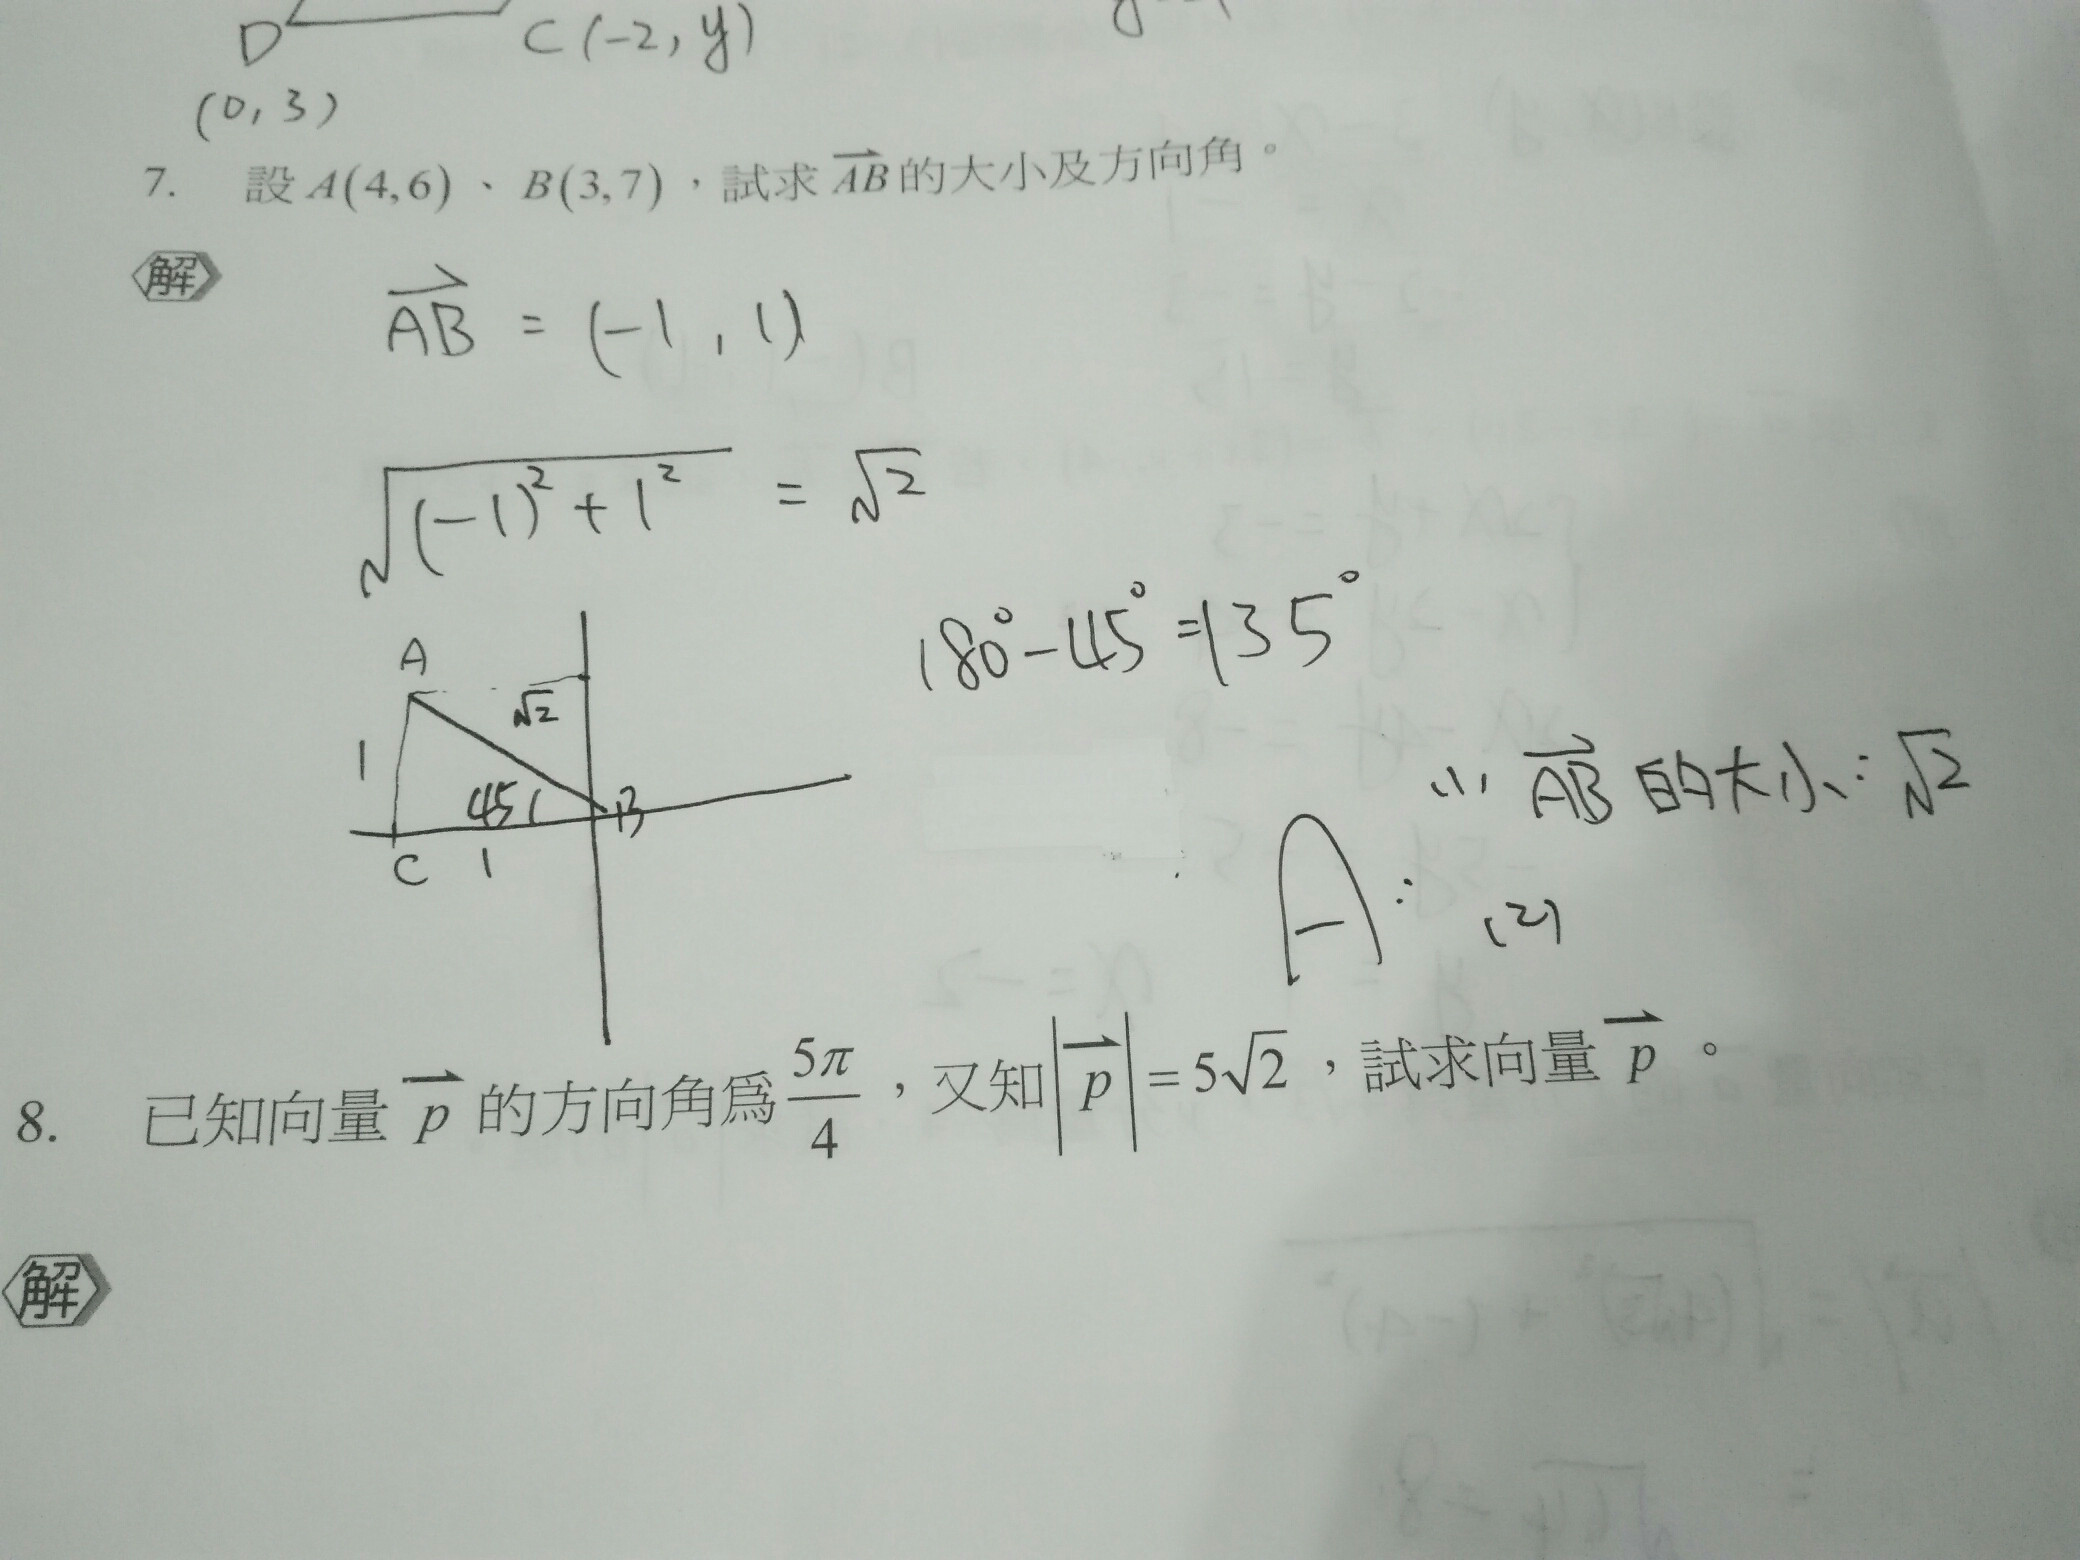 D C (-2, y)
(0, 3)
7. 設 A(4,6)、B(3,7)，試求 $\overrightarrow{AB}$ 的大小及方向角。
解
$\overrightarrow{AB}$ = (-1, 1)
$\sqrt{(-1)^2+1^2}$ = $\sqrt{2}$
180° - 45° = 135°
A
$\sqrt{2}$
1
45
B
C 1
(1) $\overrightarrow{AB}$ 的大小: $\sqrt{2}$
A: (2)
8. 已知向量 $\overrightarrow{p}$ 的方向角爲 $\frac{5\pi}{4}$，又知 $|\overrightarrow{p}|$ = 5$\sqrt{2}$，試求向量 $\overrightarrow{p}$。
解